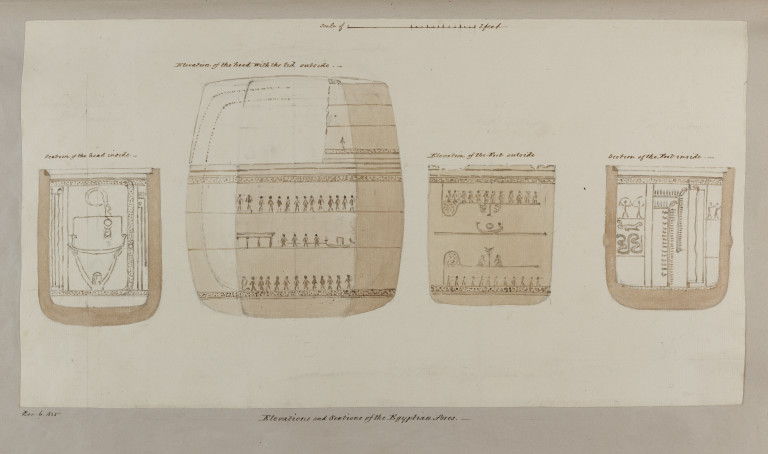 Scale of
2 feet
Elevation of the head with the lid outside. —
Section of the head inside —
Elevation of the Foot outside
Section of the Foot inside —
Dec. 6. 1825
Elevations and Sections of the Egyptian —